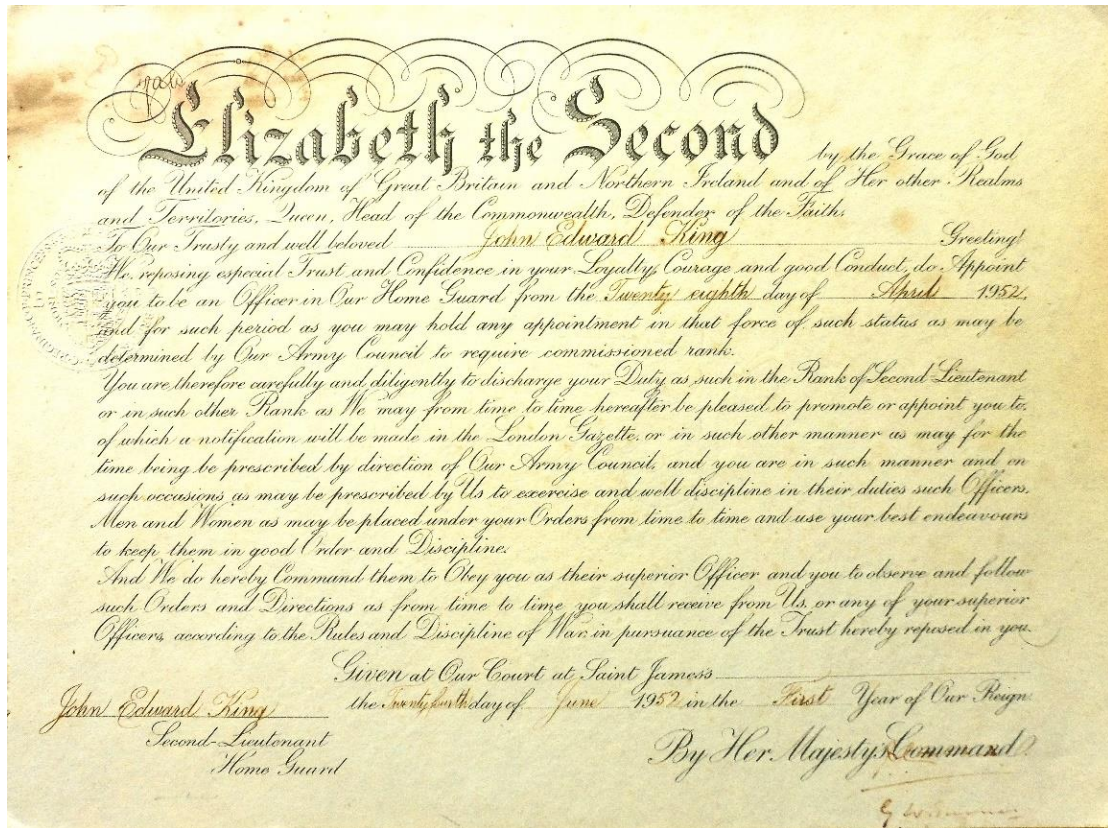 Elizabeth the Second by the Grace of God
of the United Kingdom of Great Britain and Northern Ireland and of Her other Realms
and Territories, Queen, Head of the Commonwealth, Defender of the Faith.
To Our Trusty and well beloved John Edward King Greeting!
We, reposing especial Trust and Confidence in your Loyalty, Courage and good Conduct, do Appoint
you to be an Officer in Our Home Guard from the Twenty eighth day of April 1952,
and for such period as you may hold any appointment in that force of such status as may be
determined by Our Army Council to require commissioned rank.
You are therefore carefully and diligently to discharge your Duty as such in the Rank of Second Lieutenant
or in such other Rank as We may from time to time hereafter be pleased to promote or appoint you to,
of which a notification will be made in the London Gazette, or in such other manner as may for the
time being be prescribed by direction of Our Army Council, and you are in such manner and on
such occasions as may be prescribed by Us to exercise and well discipline in their duties such Officers,
Men and Women as may be placed under your Orders from time to time and use your best endeavours
to keep them in good Order and Discipline.
And We do hereby Command them to Obey you as their superior Officer and you to observe and follow
such Orders and Directions as from time to time you shall receive from Us, or any of your superior
Officers, according to the Rules and Discipline of War, in pursuance of the Trust hereby reposed in you.
Given at Our Court at Saint James's
the Twenty fourth day of June 1952 in the First Year of Our Reign
John Edward King
Second-Lieutenant
Home Guard
By Her Majesty's Command